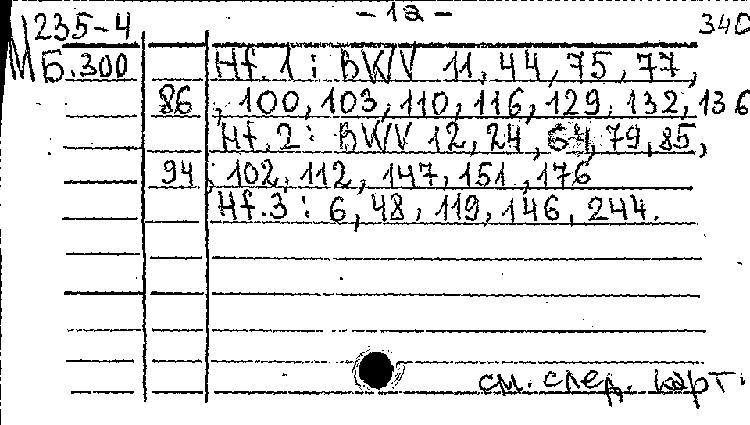 - 12 -
М 235-4 340
Б.300 Hf. 1 : BWV 11, 44, 75, 77,
86, 100, 103, 110, 116, 129, 132, 136
Hf. 2 : BWV 12, 24, 64, 79, 85,
94, 102, 112, 147, 151, 176
Hf. 3 : 6, 48, 119, 146, 244.
см. след. карт.